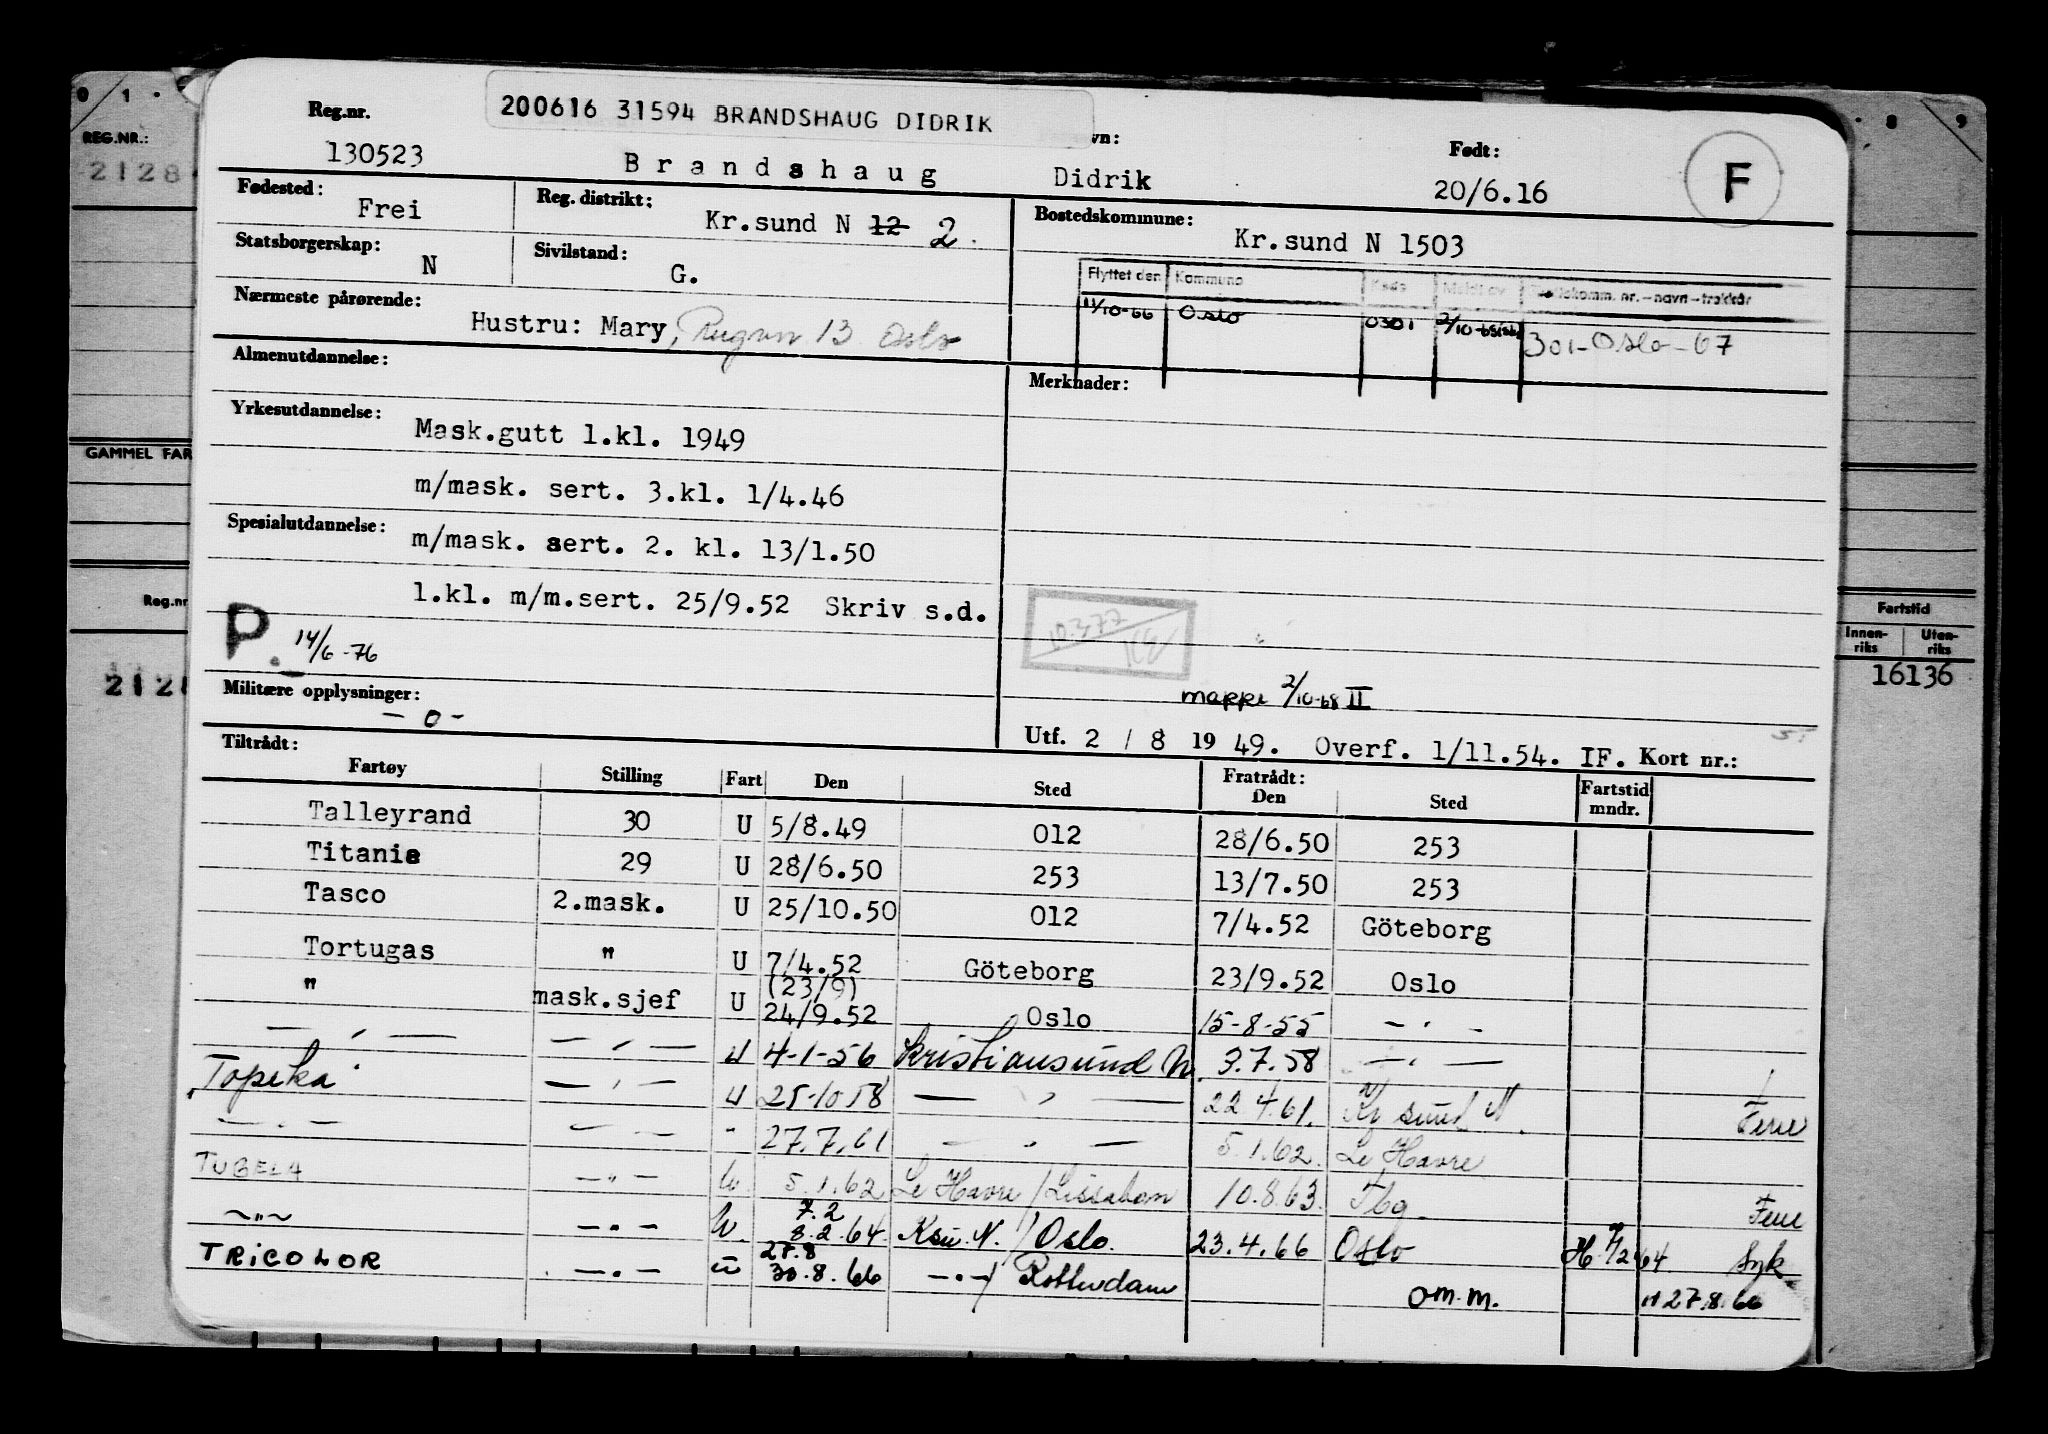 0 1 . . 8 9
REG.NR.:
2128
GAMMEL FAR
Reg.nr
212
Fartstid
Innen-riks Uten-riks
16136
200616 31594 BRANDSHAUG DIDRIK
Reg.nr. vn: Født:
130523 Brandshaug Didrik 20/6.16 F
Fødested: Frei Reg. distrikt: Kr.sund N 12 2. Bostedskommune: Kr.sund N 1503
Statsborgerskap: N Sivilstand: G.
Flyttet den Kommune Kode Meldt av -navn-trekkår
11/10-66 Oslo 0301 301-Oslo-67
Nærmeste pårørende: Hustru: Mary, 13 Oslo
Almenutdannelse: Merknader:
Yrkesutdannelse: Mask.gutt 1.kl. 1949
m/mask. sert. 3.kl. 1/4.46
Spesialutdannelse: m/mask. sert. 2. kl. 13/1.50
1.kl. m/m.sert. 25/9.52 Skriv s.d.
P. 14/6-76
mappe 2/10-68 II
Militære opplysninger: -0-
Utf. 2 / 8 19 49. Overf. 1/11.54. IF. Kort nr.:
Tiltrådt: Fratrådt:
Fartøy Stilling Fart Den Sted Den Sted Fartstid mndr.
Talleyrand 30 U 5/8.49 012 28/6.50 253
Titania 29 U 28/6.50 253 13/7.50 253
Tasco 2.mask. U 25/10.50 012 7/4.52 Göteborg
Tortugas " U 7/4.52 Göteborg 23/9.52 Oslo
" mask.sjef U (23/9) 24/9.52 Oslo 15-8-55 — " —
— " — — " — U 4-1-56 Kristiansund N. 3.7.58 — " —
Topeka — " — U 25-10 58 — " — 22 4.61. Kr sund N. Ferie
— " — — " — " 27.7.61 — " — 5.1.62. Le Havre
TUBELA — " — U. 5.1.62 Le Havre / Lissabon 10.8.63. Tbg. Ferie
— " — — " — U. 7.2 8.2.64. Ksu. N. / Oslo. 23.4.66 Oslo Syk
TRICOLOR — " — U 27.8 30.8.66 — " — / Rotterdam om.m. 27.8.66